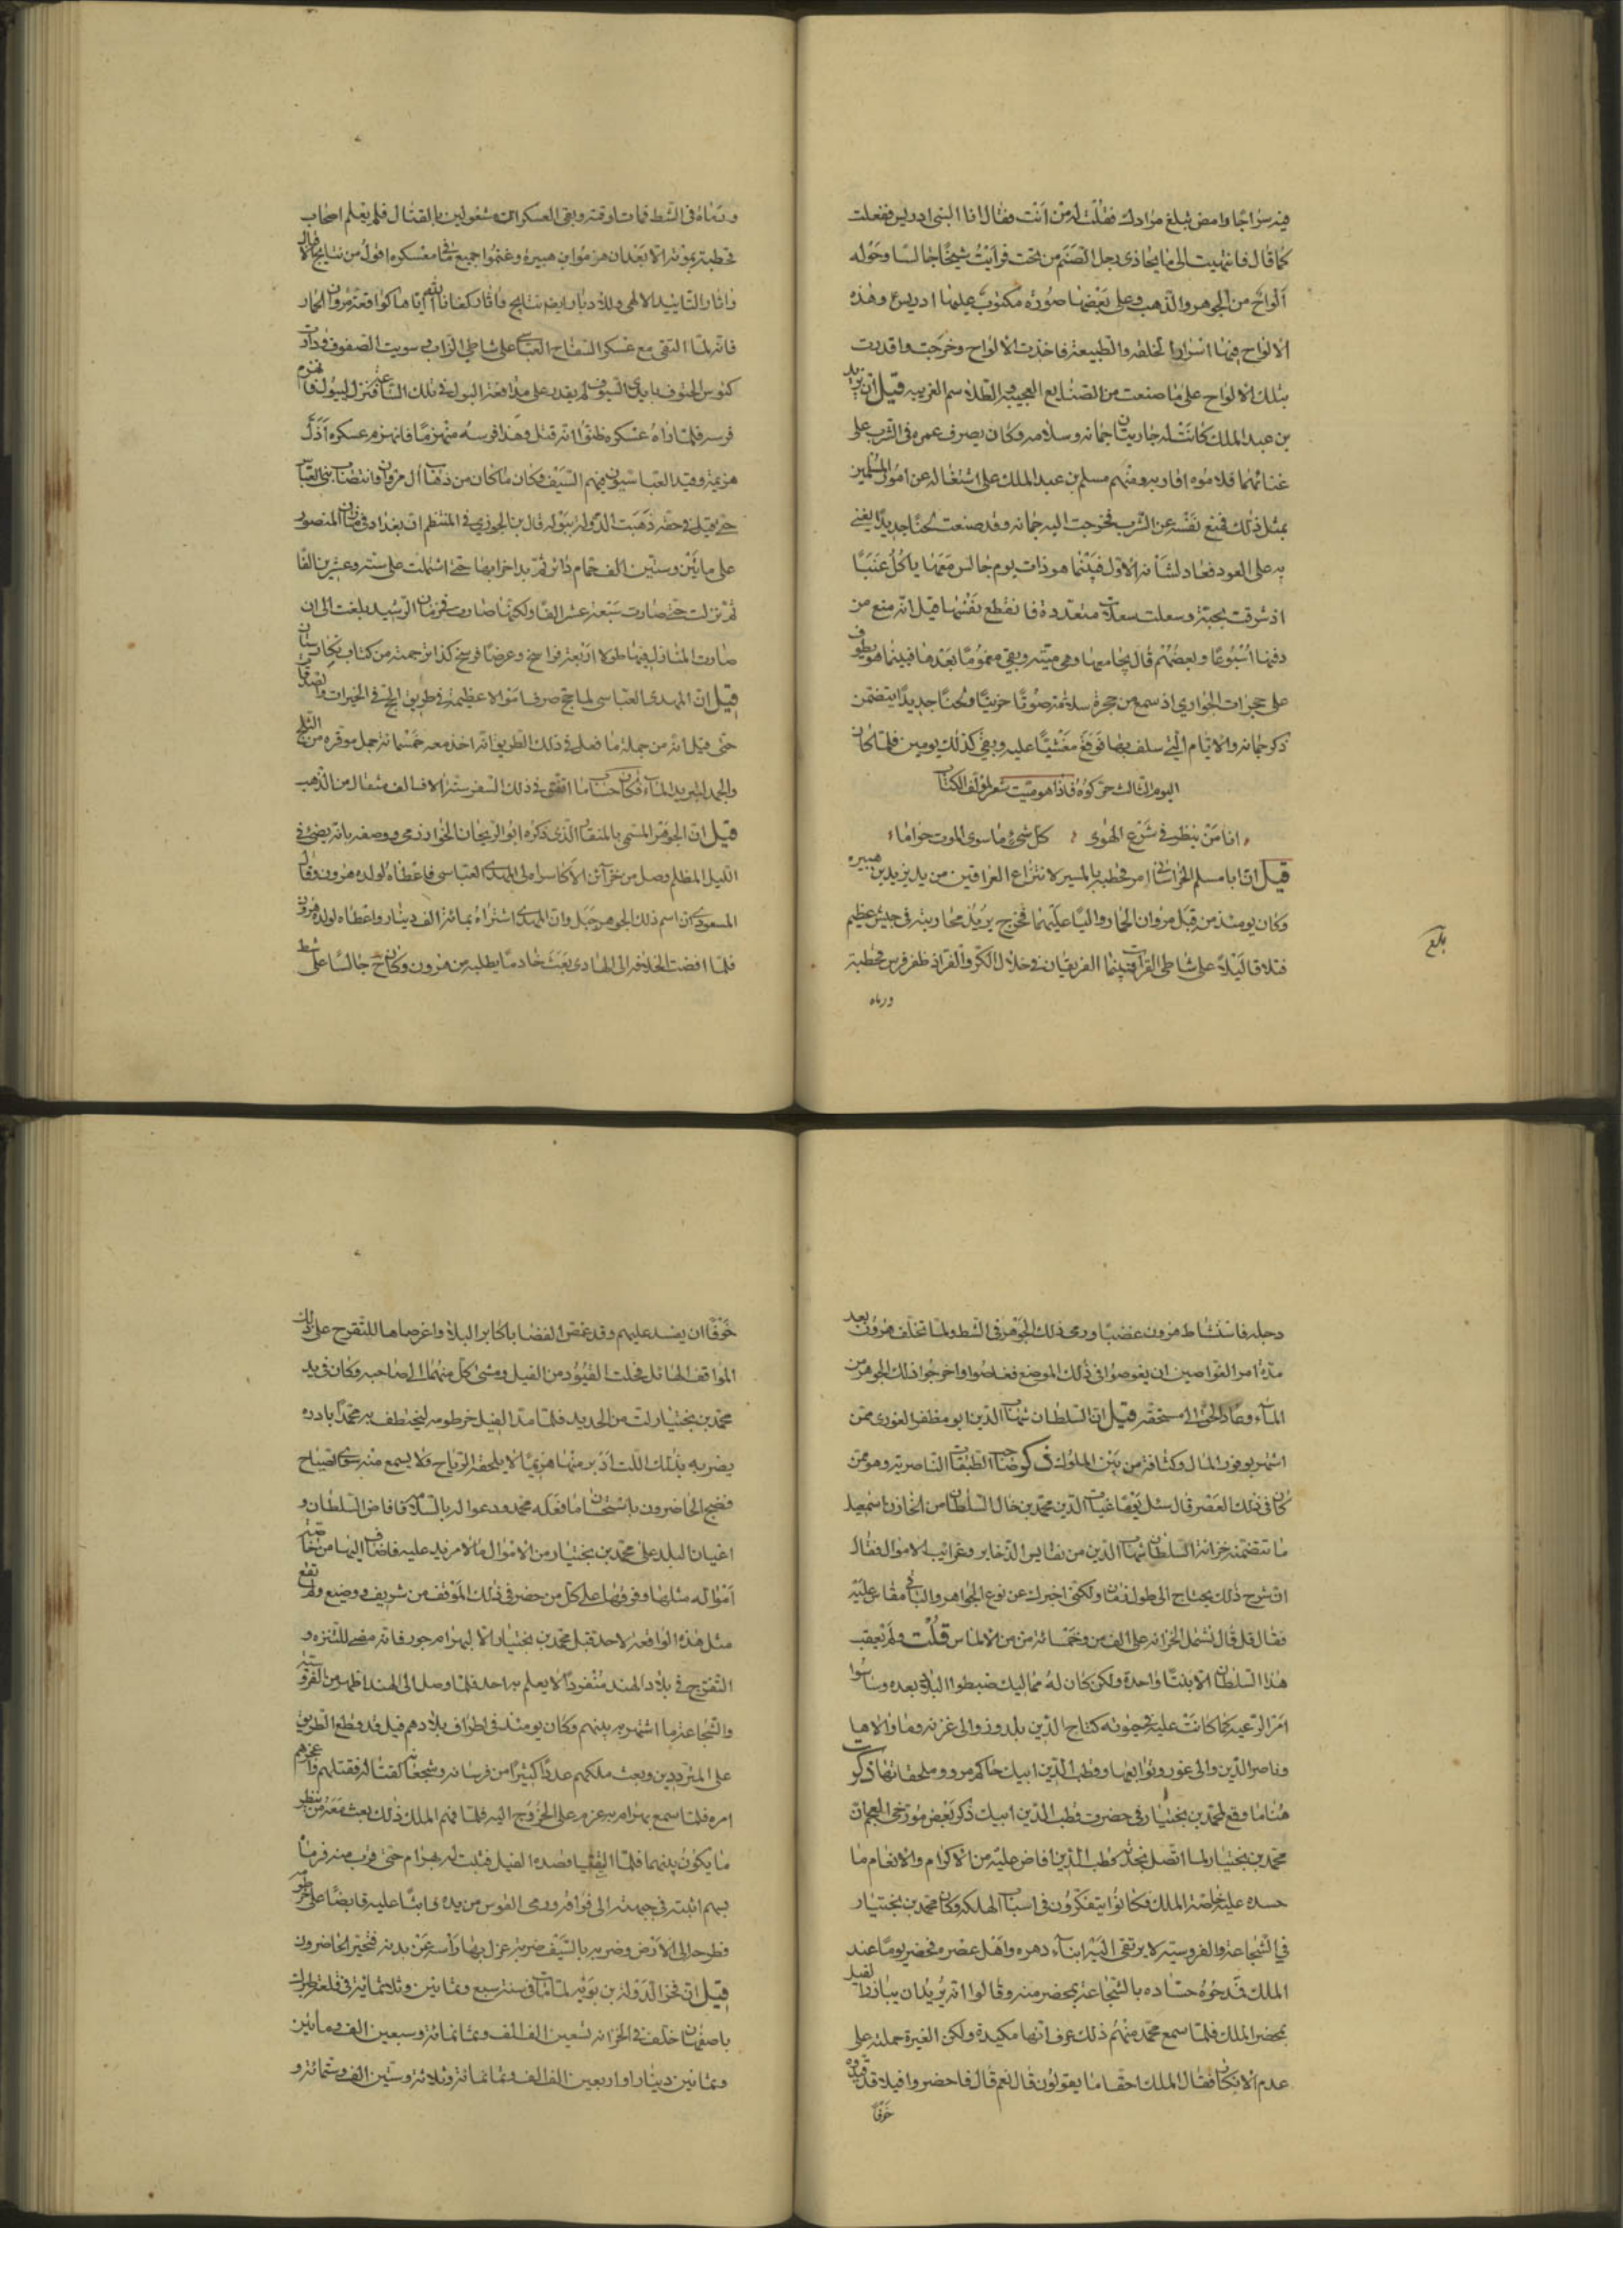 فيه سراجا وامض تبلغ مرادك فقلت له من انت فقال انا النبي ادريس ففعلت
كما قال فانتهيت الى ما يحاذى رجل الصنم من تحت فرايت شيخا جالسا وحوله
الواح من الجوهر والذهب وعلى بعضها صورة مكتوب عليها ادريس وهذه
الالواح فيها اسرار الخلقة والطبيعة فاخذت الالواح وخرجت واقدرت
بتلك الالواح على ما صنعت من الصنايع العجيبة والطلاسم الغريبة قيل ان يزيد
بن عبد الملك كانت له جاريتان حبابة وسلامة وكان يصرف عمره فى الشرب على
غنائهما فلاموه اقاربه ومنهم مسلم بن عبد الملك على اشتغاله عن امور المسلمين
بمثل ذلك فمنع نفسه عن الشرب فخرجت اليه حبابة وقد صنعت لحنا جديدا يغنى
به على العود فعاد لشانه الاول فبينما هو ذات يوم جالس معها ياكل عنبا
اذ شرقت بحبة وسعلت سعلات متعددة فانقطع نفسها قيل انه منع من
دفنها اسبوعا وبعضهم قال يجامعها وهى ميتة وبقى مغموما بعدها فبينما هو يطوف
على حجرات الجوارى اذ سمع من حجرة سلامة صوتا حزينا ولحنا جديدا يتضمن
ذكر حبابة والايام التى سلف بها فوقع مغشيا عليه وبقى كذلك يومين فلما كان
اليوم الثالث حركوه فاذا هو ميت شعر لمؤلف الكتاب
انا من ينظر فى شرع الهوى كل شىء ما سوى الموت حراما
قيل ان ابا مسلم الخراسانى امر قحطبة بالمسير لانتزاع العراقين من يد يزيد بن هبيرة
وكان يومئذ من قبل مروان الحمار واليا عليهما فخرج يريد محاربته فى جيش عظيم
فتلاقا ليلا على شاطى الفرات فبينما الفريقان فى خلال الكر والفر اذ ظفر فرس قحطبة
ورماه
بلغ
ورماه فى الشط فمات لوقته وبقى العسكران مشغولين بالقتال فلم يعلم اصحاب
قحطبة بموته الا بعد ان هزموا ابن هبيرة وغنموا جميع ما فى معسكره اقول من نتايج الاقبال
واثار التاييد الالهى وللادبار ايضا نتايج واثار كفانا الله اياها كواقعة مروان الحمار
فانه لما التقى مع عسكر السفاح العباسى على شاطى الزاب وسويت الصفوف ودارت
كئوس الحتوف بايدى السيوف لم يقدر على مدافعة البول فى تلك الساعة فنزل ليبول فانهزم
فرسه فلما راه عسكره ظنوا انه قتل وهذا فرسه منهزما فانهزم عسكره اذل
هزيمة وقيد العباسيون فيهم السيف وكان ما كان من ذهاب ال مروان وانتصاب بنى العباس
حتى قيل فى حقه ذهبت الدولة ببولة قال بن الجوزى فى المنتظم ان بغداد فى زمان المنصور
على مايتين وستين الف حمام دائر ثم بدا خرابها حتى اشتملت على ستة وعشرين الفا
ثم نزلت حتى صارت سبعة عشر الفا ولكنها صارت فى زمان الرشيد بلغت الى ان
صارت المنازل فيها طولا اربعة فراسخ وعرضا فرسخ كذا ترجمته من كتاب نكارستان
قيل ان المهدى العباسى لما حج صرف اموالا عظيمة فى طريق الحج فى الخيرات والصدقات
حتى قيل انه من جملة ما فعل فى ذلك الطريق انه اخذ معه خمسمائة جمل موقرة من الثلج
والجمد لتبريد الماء فكان حساب ما انفق فى ذلك السفر ستة الاف الف مثقال من الذهب
قيل ان الجوهر المسمى بالمنقار الذى ذكره ابو الريحان الخوارزمى ووصفه بانه يضئ فى
الليل المظلم وصل من خزآئن الاكاسرة الى المهدى العباسى فاعطاه لولده هرون وقال
المسعودى ان اسم ذلك الجوهر جبل وان المهدى اشتراه بمائة الف دينار واعطاه لولده هرون
فلما افضت الخلافة الى الهادى بعث خادما يطلبه من هرون وكان ح جالسا على شط
دجلة فاستشاط هرون غضبا ورمى ذلك الجوهر فى الشط ولما تخلف هرون بعد
مدة امر الغواصين ان يغوصوا فى ذلك الموضع فغاصوا واخرجوا ذلك الجوهر من
المآء وعاد الحق الى مستحقه قيل ان السلطان شهاب الدين ابو مظفر الغورى ممن
اشتهر بوفور المال وكثافة من بين الملوك ذكر صاحب الطبقات الناصرية وهو ممن
كان فى ذلك العصر قال سئل يوما غياث الدين محمد بن خال السلطان من الخازن اسمعيل
ما تتضمنه خزانة السلطان شهاب الدين من نفايس الذخاير وغرايب الاموال فقال
ان شرح ذلك يحتاج الى طول زمان ولكنى اخبرك عن نوع الجواهر والباقى مقاس عليه
فقال قل قال تشمل الخزانة على الف من وخمسمائة من من الالماس قلت ولم يعقب
هذا السلطان الا بنتا واحدة ولكن كان له مماليك ضبطوا البلاد بعده وساسوا
امر الرعية كما كانت عليه فى حيوته كتاج الدين يلدوز والى غزنة وما والاها
وناصر الدين والى غور وتوابعها وقطب الدين ايبك حاكم مرو وملحقاتها ذكرت
هنا ما وقع لمحمد بن بختيار فى حضرت قطب الدين ايبك ذكر بعض مؤرخى العجم ان
محمد بن بختيار لما اتصل بخدمة قطب الدين افاض عليه من الاكرام والانعام ما
حسده عليه خاصة الملك فكانوا يتفكرون فى اسباب الهلكه وكان محمد بن بختيار
فى الشجاعة والفروسية لا يرتقى اليه ابنآء دهره واهل عصره فحضر يوما عند
الملك فمدحوه حساده بالشجاعة بمحضر منه وقالوا انه يريد ان يبارز الفيل
بمحضر الملك فلما سمع محمد منهم ذلك عرف انها مكيدة ولكن الغيرة حملته على
عدم الانكار فقال الملك احقا ما يقولون قال نعم قال فاحضروا فيلا قد قيدوه
خوفا
خوفا ان يفسد عليهم وقد غص الفضا باكابر البلاد واغرصاها للتفرج على ذلك
المواقف الهائل فحلت القيود من الفيل ومشى كل منهما الى صاحبه وكان فى يد
محمد بن بختيار لت من الحديد فلما مد الفيل خرطومه ليختطف به محمدا بادره
بضربة بذلك اللت ادبر منها هزيما لا يلحقه الرياح ولا يسمع منه سوى الصياح
فضج الحاضرون باستحسان ما فعله محمد ودعوا له بالسلامة فافاض السلطان و
اعيان البلد على محمد بن بختيار من الاموال ما لا مزيد عليه فاضاف اليها من خاصة
امواله مثلها وفرقها على كل من حضر فى ذلك الموقف من شريف ووضيع ولم تقع
مثل هذه الواقعة لاحد قبل محمد بن بختيار الا لبهرام جور فانه مضى للتنزه و
التفرج فى بلاد الهند منفردا لا يعلم به احد فلما وصل الى الهند اظهر من الفروسية
والشجاعة ما اشتهر به بينهم وكان يومئذ فى اطراف بلادهم فيل قد قطع الطريق
على المترددين وبعث ملكهم عددا كثيرا من فرسانه وشجعانه لقتاله فقتلهم واعجزهم
امره فلما سمع بهرام به عزم على الخروج اليه فلما فهم الملك ذلك بعث معه من ينظر
ما يكون بينهما فلما التقيا قصده الفيل فثبت له بهرام حتى قرب منه فرماه
بسهم اثبته فى جبهته الى فواقه ورمى القوس من يده واثبا عليه قابضا على خرطومه
فطرحه الى الارض وضربه بالسيف ضربة عزل بها رأسه عن بدنه فتحير الحاضرون
قيل ان فخر الدولة بن بويه لما مات فى سنة سبع وثمانين وثلاثمائة فى قلعة طبرك
باصفهان خلف فى الخزانة تسعين الف الف وثمانمائة وسبعين الف ومايتين
وثمانين دينارا واربعين الف الف وثمانمائة وثلاثة وستين الف وستمائة و